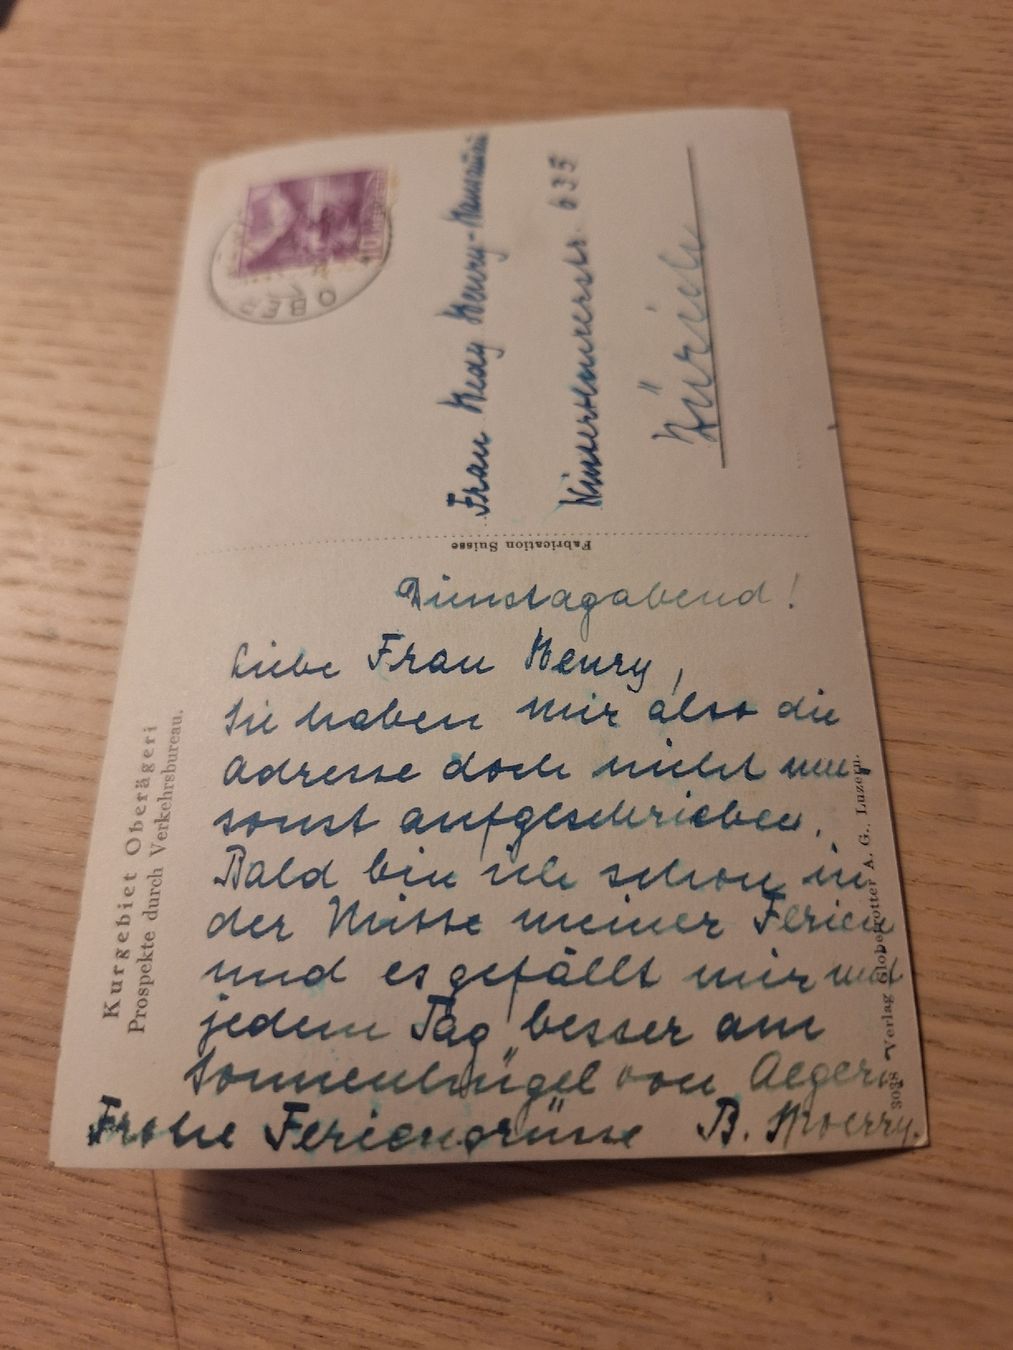 Kurgebiet Oberägeri
Prospekte durch Verkehrsbureau.
Dienstagabend!
Liebe Frau Henry,
Sie haben mir also die
Adresse doch nicht um-
sonst aufgeschrieben.
Bald bin ich schon in
der Mitte meiner Ferien
und es gefällt mir mit
jedem Tag besser am
Sonnenhügel von Aegeri.
Frohe Feriengrüsse B.
Fabrication Suisse
3038 Verlag Globetrotter A. G., Luzern.
OBER
10
Frau Hedy Henry-
Winterthurerstr. 635
Zürich